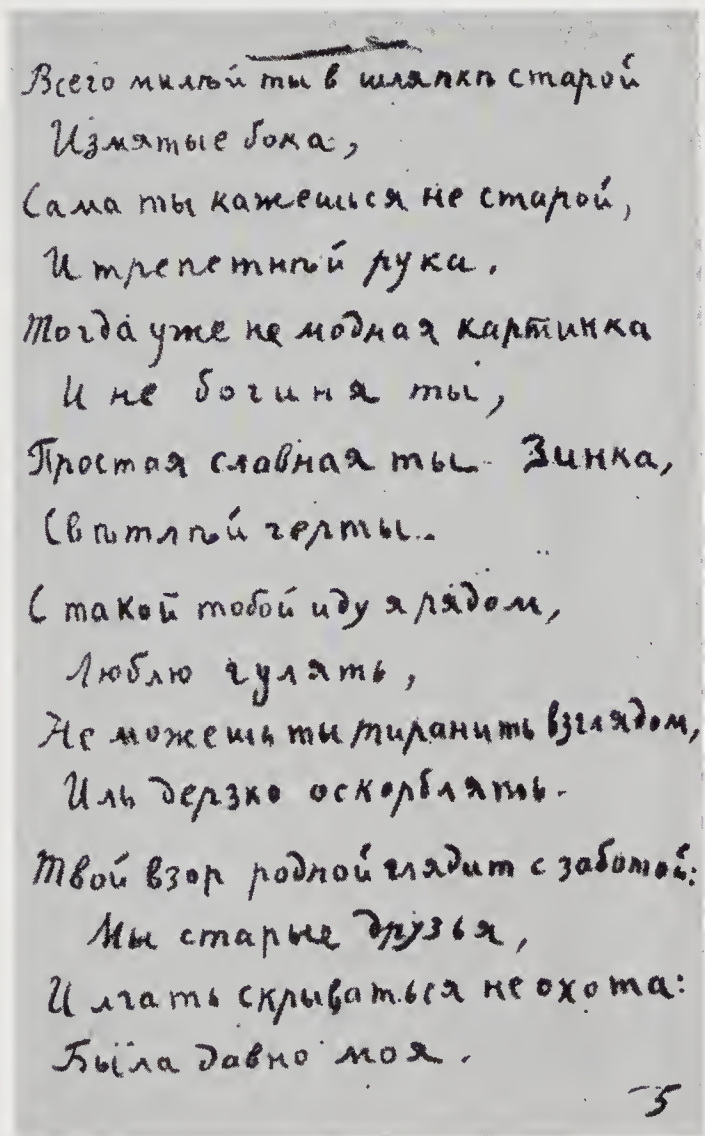 Всего милѣй ты в шляпкѣ старой
Измятые бока,
Сама ты кажешься не старой,
И трепетнѣй рука.
Тогда уже не модная картинка
И не богиня ты,
Простая славная ты Зинка,
Свѣтлѣй черты..
С такой тобой иду я рядом,
Люблю гулять,
Не можешь ты тиранить взглядом,
Иль дерзко оскорблять.
Твой взор родной глядит с заботой:
Мы старые друзья,
И лгать скрываться не охота:
Была давно моя.
5